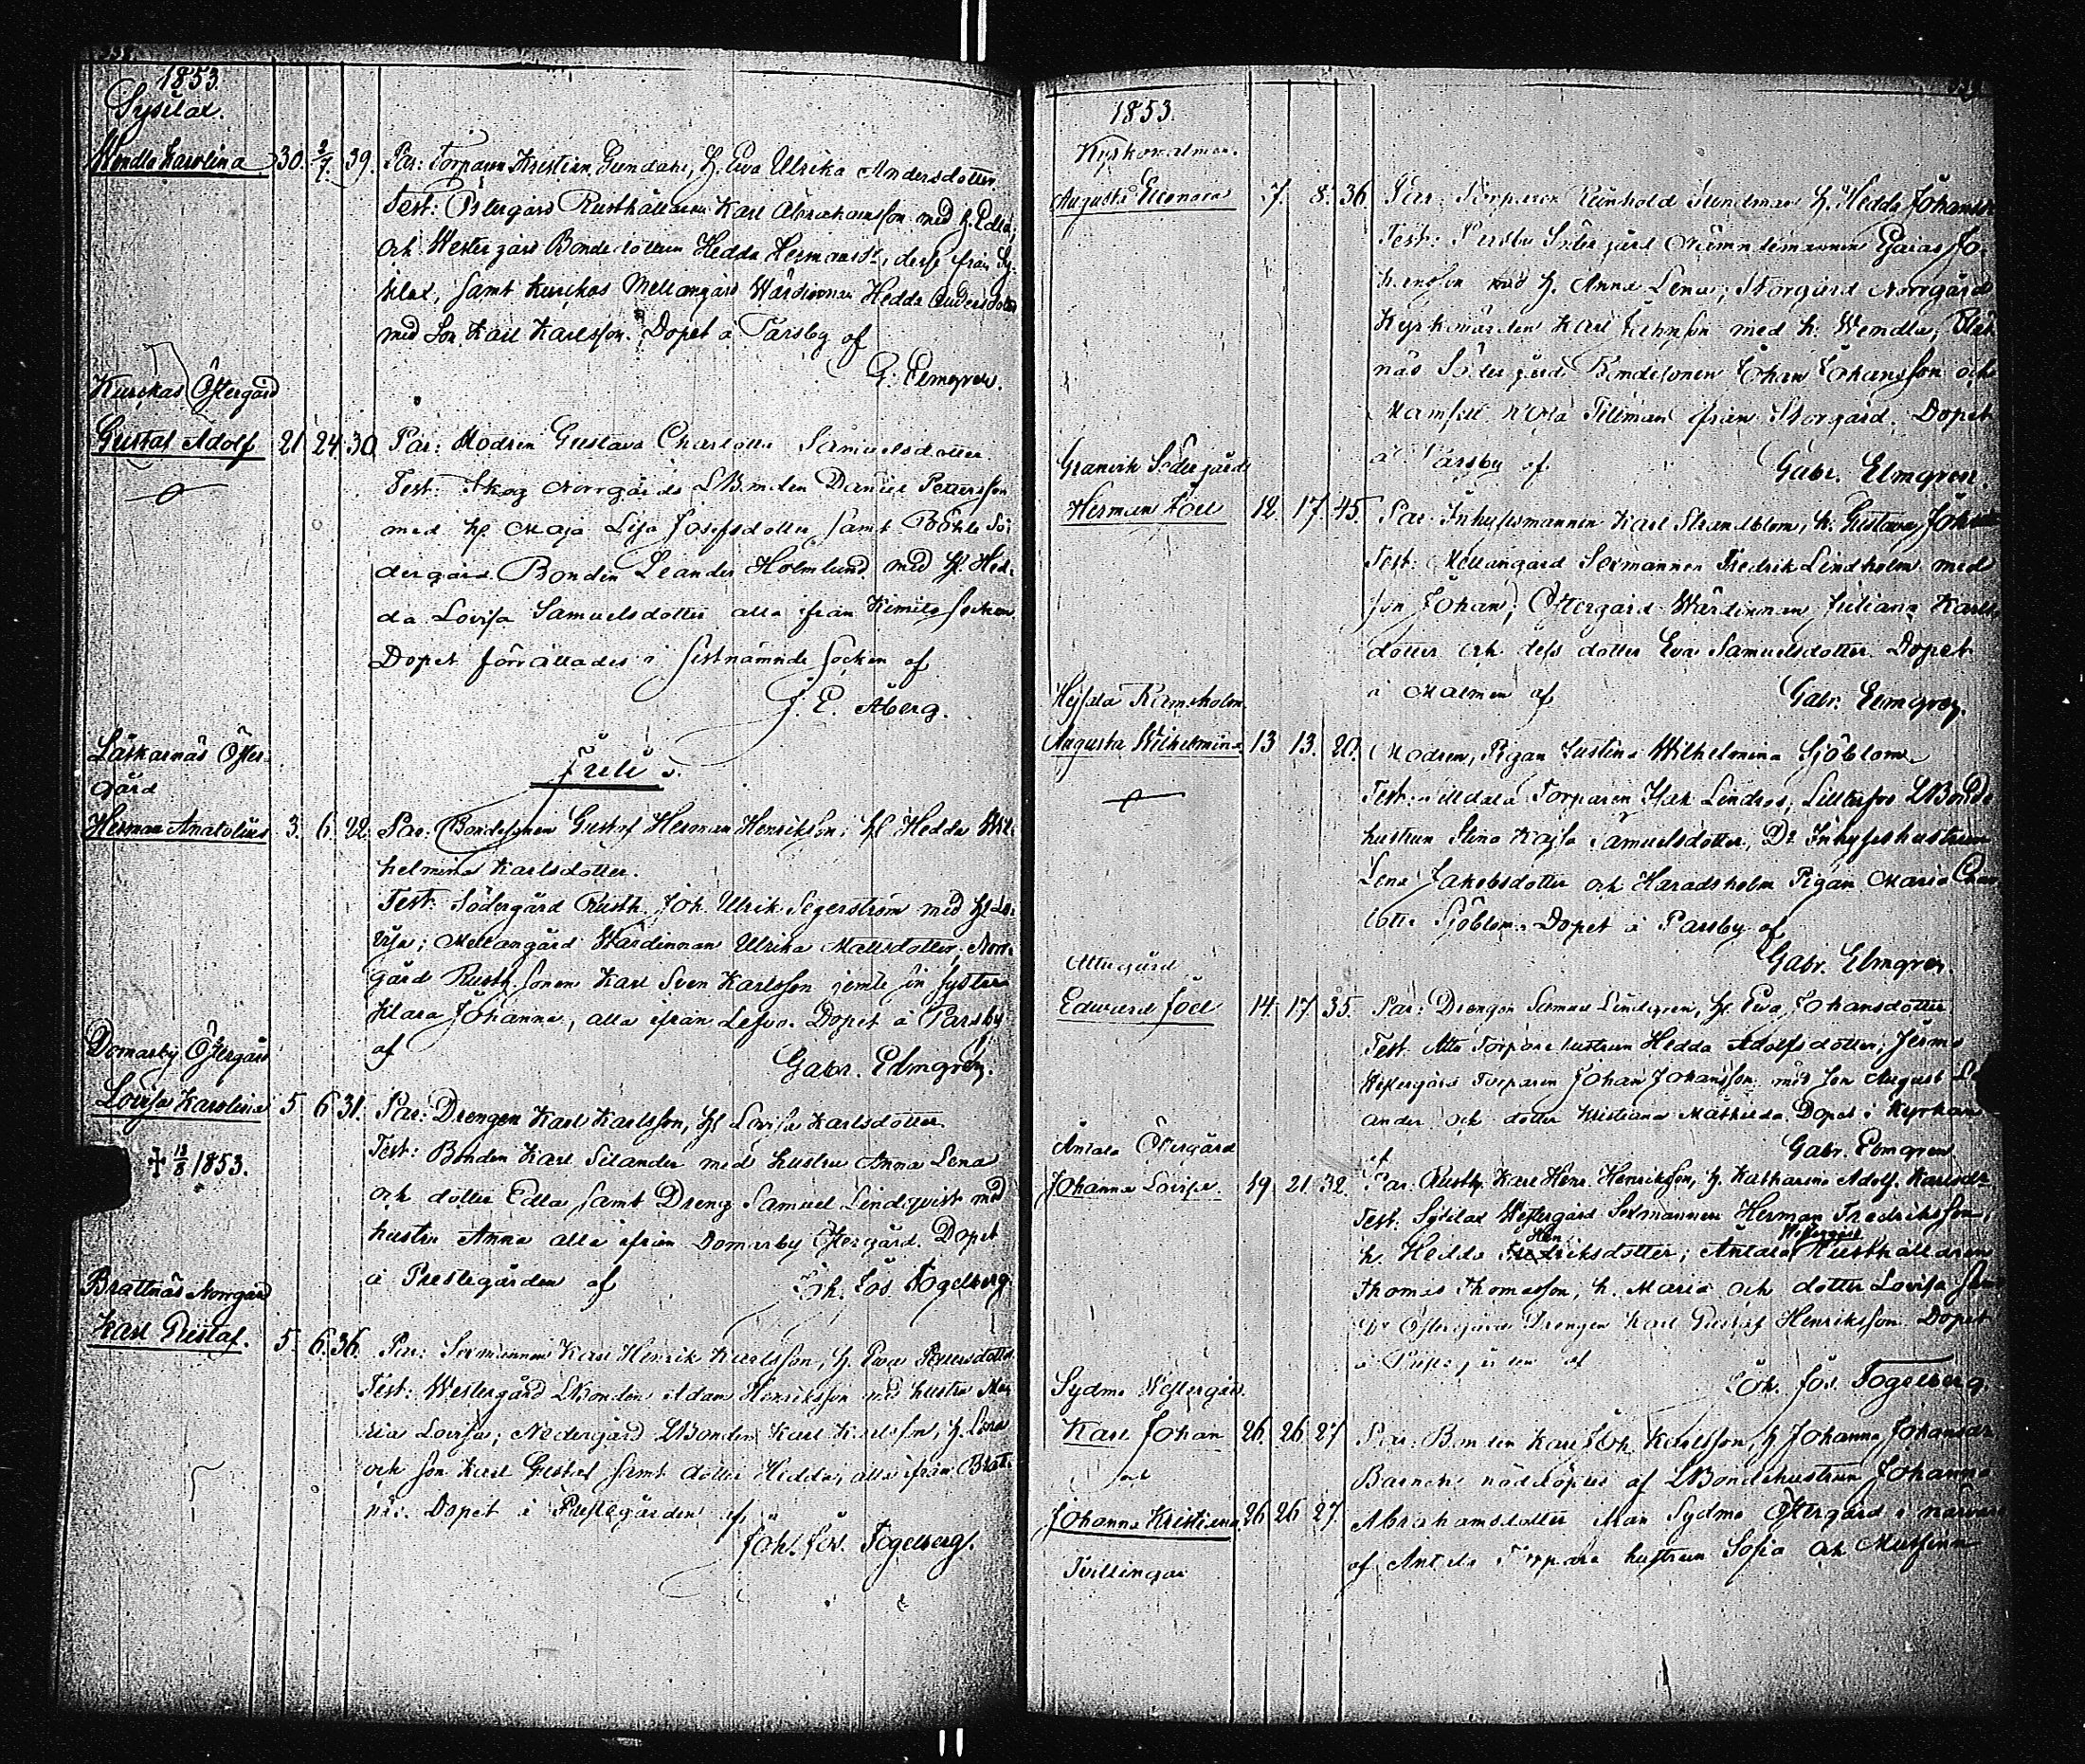 1853.
Sysilax.
Wendla Karolina 30. 2/7. 39. Par: Torparen Kristian Grendahl, h. Eva Ulrika Andersdotter.
Test: Östergård Rusthållaren Karl Abrahamsson med h. Edla,
och Westergård Bonde dottren Hedda Hermansdr, desse från Sy-
silax, samt Kurckas Mellangård Wärdinnan Hedda Andersdotter
med Son Karl Karlsson. Dopet å Parsby af
G. Elmgren.
Kurckas Östergård
Gustaf Adolf 21 24 30 Par: Modren Gustava Charlotta Samuelsdotter
Test: Skog Norrgårds LBonden Daniel Pettersson
med h. Maja Lisa Josefsdotter, samt Böhle Sö-
dergård Bonden Leander Holmlund med H. Hed-
da Lovisa Samuelsdotter alla ifrån Kimito socken.
Dopet förrättades i sistnämnde socken af
J. E. Åberg.
Juli
Östergård
Herman Anatolius 3. 6. 22. Par: Bondesonen Gustaf Herman Henriksson, H. Hedda Wil-
helmina Karlsdotter.
Test: Södergård Rusth. Joh. Ulrik Segerström med H. Lo-
visa; Mellangård Wärdinnan Ulrika Mattsdotter, Norr-
gård Rusth. sonen Karl Sven Karlsson jemte sin syster
Klara Johanna, alla ifrån Lefvo. Dopet å Parsby
af
Gabr. Elmgren.
Domarby Östergård
Lovisa Karolina 5 6 31. Par: Drengen Karl Karlsson, H. Lovisa Karlsdotter.
† 18/8 1853.
Test: Bonden Karl Silander med hustru Anna Lena
och dotter Edla samt Dreng Samuel Lindqvist med
hustru Anna alla ifrån Domarby Östergård. Dopet
å Prestegården af Joh. Jos. Fogelberg.
Brattnäs Norrgård
Karl Gustaf. 5. 6. 36. Par: Sexmannen Karl Henrik Karlsson, h. Eva Pettersdotter
Test: Westergård LBonden Adam Henriksson med hustru Ma-
ria Lovisa; Nedergård LBonden Karl Karlsson, h. Lena
och son Karl Gustaf samt dotter Hedda, alla ifrån Bratt-
näs. Dopet å Prestegården af
Joh. Jos. Fogelberg.
1853.
Kyrkomalmen.
Augusta Eleonora 7. 8. 36. Par: Torparen Reinhold Sundman h. Hedda Johansdr
Test: Södergård Nämndemannen Gaius Jo-
hansson med h. Anna Lena; Storgård Norrgård
Kyrkvärden Karl Johnson med h. Wendla,
näs Södergård Bondesonen Johan Johansson och
Mamsell Maria Tillman ifrån Storgård. Dopet
å Parsby af Gabr. Elmgren.
Granvik Södergård
Herman Joel 12. 17. 45. Par: Inhysesmannen Karl Strandblom, h. Gustava
Test: Mellangård Sexmannen Fredrik Lindholm med
son Johan; Östergård Wärdinnan Juliana Karls-
dotter och dess dotter Eva Samuelsdotter. Dopet
å Malmen af Gabr. Elmgren.
Ramsholm.
Augusta Wilhelmina 13 13. 20. Modren, Pigan Justina Wilhelmina Sjöblom
Test: Torparen Isak Lindros, LBonde
hustrun Stina Kajsa Samuelsdotter, Do Inhyseshustrun
Lena Jakobsdotter och Haradsholm Pigan Maria Char-
lotta Sjöblom. Dopet å Parsby af
Gabr. Elmgren.
Attugård
Edward Joel 14. 17. 35. Par: Drengen Samuel Lindgren, H. Eva Johansdotter
Test: Attu Torpare hustrun Hedda Adolfsdotter; Jermo
Westergård Torparen Johan Johansson med son August Le-
ander och dotter Kristiana Mathilda. Dopet i Kyrkan
af Gabr. Elmgren
Östergård
Johanna Lovisa. 19. 21. 32. Par: Rusth. Karl Henr. Henriksson, h. Katharina Adolf. Karlsdr
Test: Sysilax Westergård Sexmannen Herman Fredriksson,
h. Hedda Henriksdotter; Westergård Rusthållaren
Thomas Thomasson, h. Maria och dotter Lovisa samt
Do Östergård Drengen Karl Gustaf Henriksson. Dopet
å Prestegården af
Joh. Jos. Fogelberg.
Sydmo Westergård.
Karl Johan 26. 26 27 Par: Bonden Karl Joh. Karlsson, h. Johanna Johansdr
och
Barnen nöddöptes af LBondehustrun Johanna
Johanna Kristiana 26 26 27. Abrahamsdotter ifrån Sydmo Östergård i närvaro
Tvillingar
af Torpare hustrun Sofia och